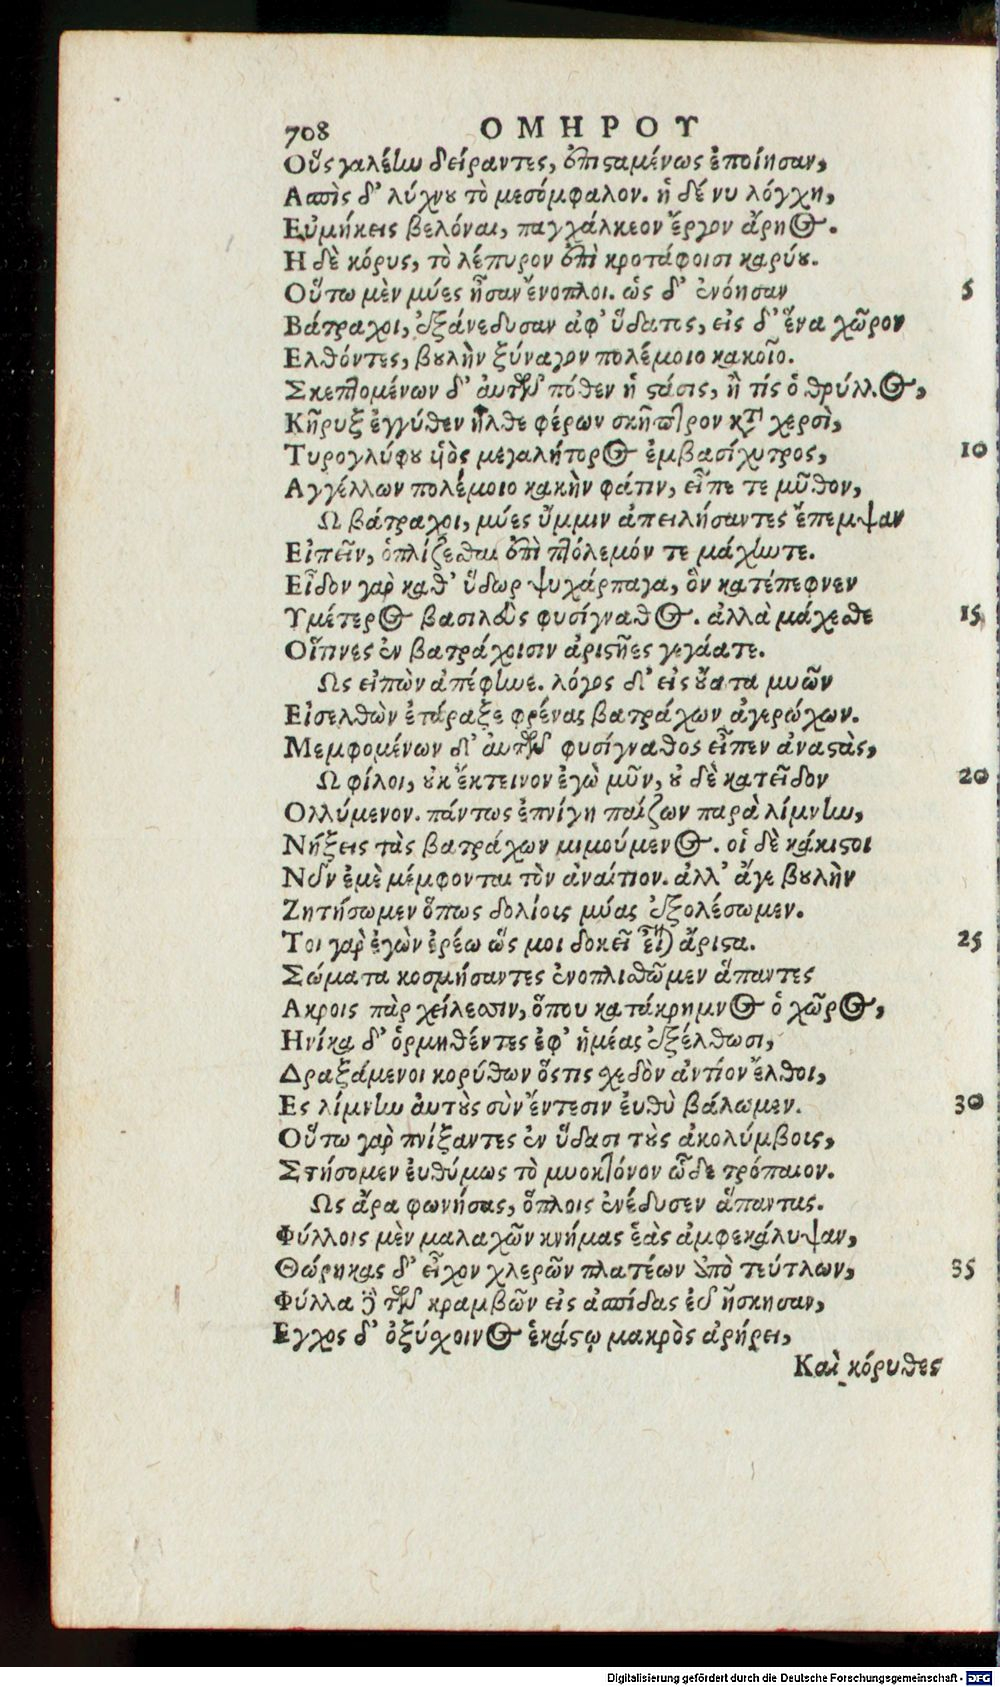 708 ΟΜΗΡΟΥ
Οὓς γαλέην δείραντες, ἐπισαμένως ἐποίησαν,
Ασπὶς δ' λύχνου τὸ μεσόμφαλον. ἡ δέ νυ λόγχη,
Εὐμήκεις βελόναι, παγχάλκεον ἔργον ἄρηος.
Η δὲ κόρυς, τὸ λέπυρον ἐπὶ κροτάφοισι καρύου.
Οὕτω μὲν μύες ἦσαν ἔνοπλοι. ὡς δ' ἐνόησαν 5
Βάτραχοι, ἐξάνεδυσαν ἀφ' ὕδατος, εἰς δ' ἕνα χῶρον
Ελθόντες, βουλὴν ξύναγον πολέμοιο κακοῖο.
Σκεπτομένων δ' αὐτῶν πόθεν ἡ στάσις, ἢ τίς ὁ θρύλλος,
Κῆρυξ ἐγγύθεν ἦλθε φέρων σκῆπτρον κατὰ χερσὶ,
Τυρογλύφου υἱὸς μεγαλήτορος ἐμβασίχυτρος, 10
Αγγέλλων πολέμοιο κακὴν φάτιν, εἶπέ τε μῦθον,
Ω βάτραχοι, μύες ὔμμιν ἀπειλήσαντες ἔπεμψαν
Εἰπεῖν, ὁπλίζεσθαι ἐπὶ πτόλεμόν τε μάχην τε.
Εἶδον γὰρ καθ' ὕδωρ ψυχάρπαγα, ὃν κατέπεφνεν
Υμέτερος βασιλεὺς φυσίγναθος. ἀλλὰ μάχεσθε 15
Οἵτινες ἐν βατράχοισιν ἀριστῆες γεγάατε.
Ως εἰπὼν ἀπέφηνε. λόγος δ' εἰς οὔατα μυῶν
Εἰσελθὼν ἐτάραξε φρένας βατράχων ἀγερώχων.
Μεμφομένων δ' αὐτῶν φυσίγναθος εἶπεν ἀναστὰς,
Ω φίλοι, οὐκ ἔκτεινον ἐγὼ μῦν, οὐ δὲ κατεῖδον 20
Ολλύμενον. πάντως ἐπνίγη παίζων παρὰ λίμνην,
Νήξεις τὰς βατράχων μιμούμενος. οἱ δὲ κάκιστοι
Νῦν ἐμὲ μέμφονται τὸν ἀναίτιον. ἀλλ' ἄγε βουλὴν
Ζητήσωμεν ὅπως δολίοις μύας ἐξολέσωμεν.
Τοι γὰρ ἐγὼν ἐρέω ὥς μοι δοκεῖ εἶναι ἄριστα. 25
Σώματα κοσμήσαντες ἐνοπλισθῶμεν ἅπαντες
Ακροις πὰρ χείλεσσιν, ὅπου κατάκρημνος ὁ χῶρος,
Ηνίκα δ' ὁρμηθέντες ἐφ' ἡμέας ἐξέλθωσι,
Δραξάμενοι κορύθων ὅστις σχεδὸν ἀντίον ἔλθοι,
Ες λίμνην αὐτοὺς σὺν ἔντεσιν εὐθὺ βάλωμεν. 30
Οὕτω γὰρ πνίξαντες ἐν ὕδασι τοὺς ἀκολύμβοις,
Στήσομεν εὐθύμως τὸ μυοκτόνον ὧδε τρόπαιον.
Ως ἄρα φωνήσας, ὅπλοις ἐνέδυσεν ἅπαντας.
Φύλλοις μὲν μαλαχῶν κνήμας ἑὰς ἀμφεκάλυψαν,
Θώρηκας δ' εἶχον χλερῶν πλατέων ἀπὸ τεύτλων, 35
Φύλλα δὲ τῶν κραμβῶν εἰς ἀσπίδας εὖ ἤσκησαν,
Εγχος δ' ὀξύσχοινος ἑκάστῳ μακρὸς ἀρήρει,
Καὶ κόρυθες
Digitalisierung gefördert durch die Deutsche Forschungsgemeinschaft - DFG